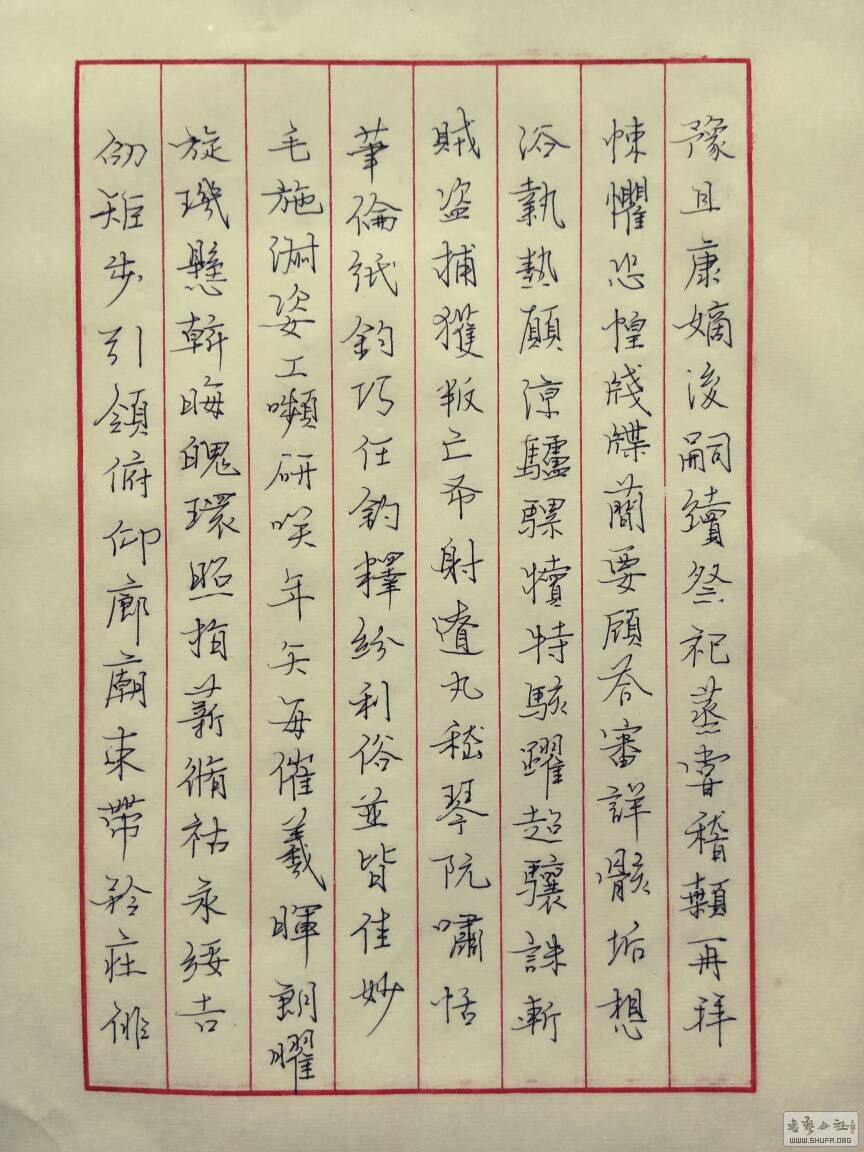 豫且康嫡後嗣續祭祀蒸嘗稽顙再拜
悚懼恐惶牋牒蕳要顧荅審詳骸垢想
浴執熱願涼驢騾犢特駭躍超驤誅斬
賊盗捕獲叛亡布射遼丸嵇琴阮嘯恬
筆倫紙鈞巧任釣釋紛利俗並皆佳妙
毛施淑姿工嚬研咲年矢每催羲暉朗曜
旋璣懸斡晦魄環照指薪脩祜永綏吉
劭矩步引領俯仰廊廟束帶矜莊俳
書藝公社
WWW.SHUFA.ORG